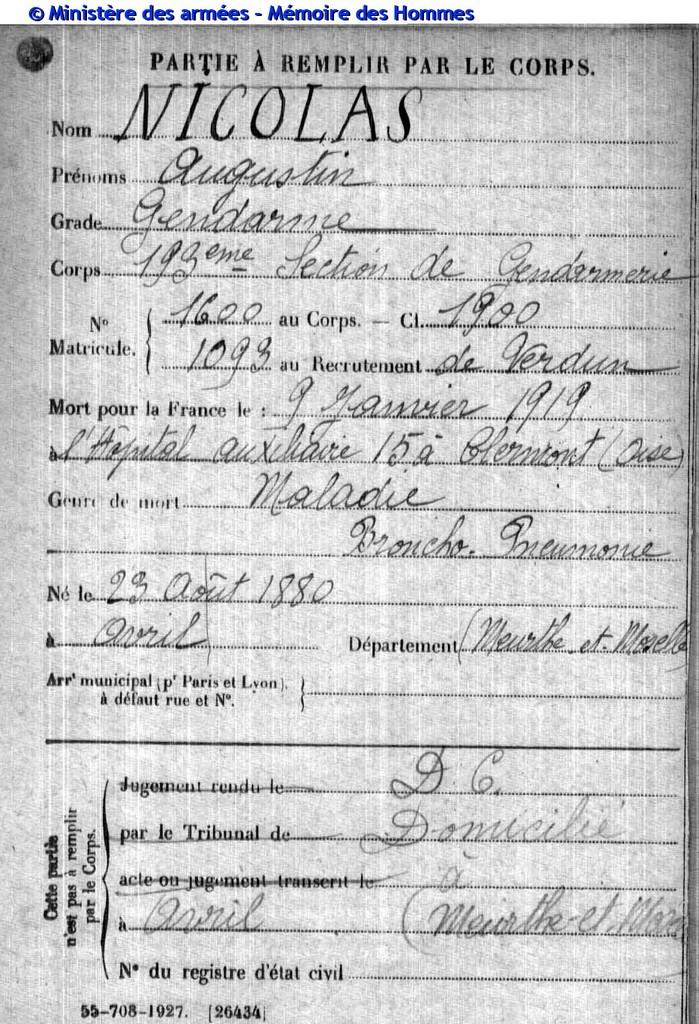 © Ministère des armées - Mémoire des Hommes
PARTIE À REMPLIR PAR LE CORPS.
Nom NICOLAS
Prénoms Augustin
Grade Gendarme
Corps 193eme Section de Gendarmerie
N° Matricule. 1600 au Corps. — Cl. 1900
1093 au Recrutement de Verdun
Mort pour la France le : 9 Janvier 1919
à l'Hôpital auxiliaire 15 à Clermont (Oise)
Genre de mort Maladie
Broncho-Pneumonie
Né le 23 Août 1880
à Avril Département (Meurthe et Moselle
Arr' municipal (p' Paris et Lyon),
à défaut rue et N°.
Cette partie n'est pas à remplir par le Corps.
Jugement rendu le D. C.
par le Tribunal de Domicilié
acte ou jugement transcrit le à
à Avril (Meurthe-et-Mos
N° du registre d'état civil
55-708-1927. [26434]